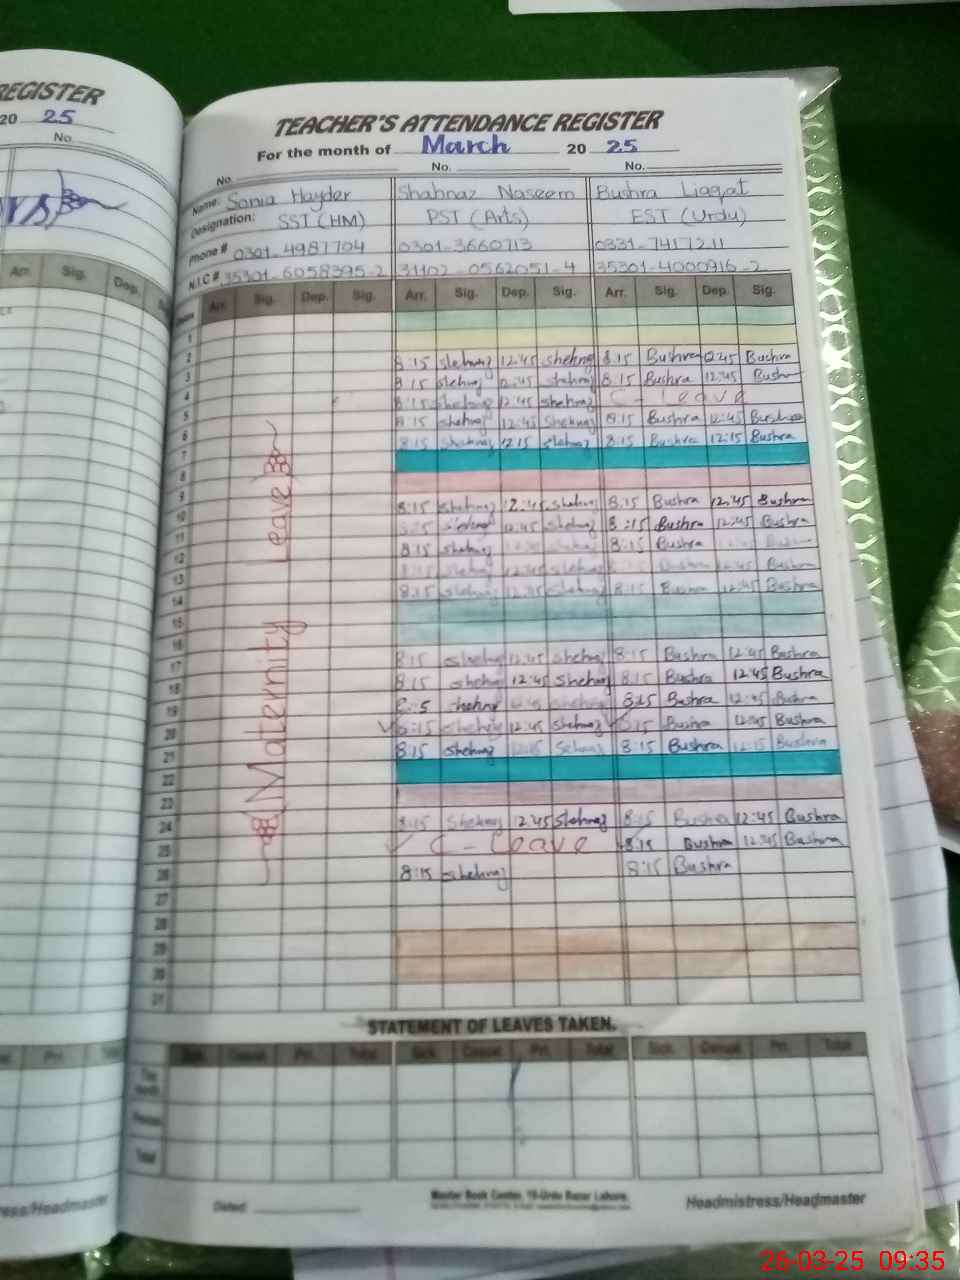 REGISTER
20 25
No.
Arr. Sig. Dep.
TEACHER'S ATTENDANCE REGISTER
For the month of March 20 25
No. No. No.
Name: Sonia Hayder Shahnaz Naseem Bushra Liaqat
Designation: SST (HM) PST (Arts) EST (Urdu)
Phone # 0301-4987704 0301-3660713 0331-7417211
N.I.C # 35301-6058395-2 31102-0562051-4 35301-4000916-2
Arr. Sig. Dep. Sig. Arr. Sig. Dep. Sig. Arr. Sig. Dep. Sig.
Maternity Leave
1
2 8:15 shehnaz 12:45 shehnaz 8:15 Bushra 12:45 Bushra
3 8:15 shehnaz 12:45 shehnaz 8:15 Bushra 12:45 Bushra
4 8:15 shehnaz 12:45 shehnaz C - Leave
5 8:15 shehnaz 12:45 shehnaz 8:15 Bushra 12:45 Bushra
6 8:15 shehnaz 12:15 shehnaz 8:15 Bushra 12:15 Bushra
7
8
9 8:15 shehnaz 12:45 shehnaz 8:15 Bushra 12:45 Bushra
10 8:15 shehnaz 12:45 shehnaz 8:15 Bushra 12:45 Bushra
11 8:15 shehnaz 8:15 Bushra
12 8:15 shehnaz 12:45 shehnaz Bushra 12:45 Bushra
13 8:15 shehnaz 12:45 shehnaz 8:15 Bushra 12:45 Bushra
14
15
16 8:15 shehnaz 12:45 shehnaz 8:15 Bushra 12:45 Bushra
17 8:15 shehnaz 12:45 shehnaz 8:15 Bushra 12:45 Bushra
18 shehnaz 12:45 shehnaz 8:15 Bushra 12:45 Bushra
19 8:15 shehnaz 12:45 shehnaz 8:15 Bushra 12:45 Bushra
20 8:15 shehnaz 12:15 Sehnaz 8:15 Bushra 12:15 Bushra
21
22
23 8:15 Shehnaz 12:45 Shehnaz 8:15 Bushra 12:45 Bushra
24 C - Leave 8:15 Bushra 12:45 Bushra
25 8:15 shehnaz 8:15 Bushra
26
27
28
29
30
31
STATEMENT OF LEAVES TAKEN.
Sick. Casual Pri. Total Sick. Casual Pri. Total Sick. Casual Pri. Total
Total
Dated: Master Book Center, 15-Urdu Bazar Lahore. Headmistress/Headmaster
Headmistress/Headmaster
26-03-25 09:35